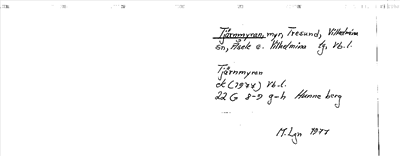 Tjärnmyren, myr, Tresund, Vilhelmina
sn, Åsele o. Vilhelmina tg, Vb. l.
Tjärnmyren
ek (1977) Vb. l.
22 G 8-9 g-h Hunneberg
M. Lgn 1977